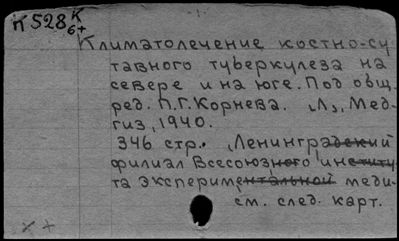 К 528 К
6+
Климатолечение костно-су
тавного туберкулеза на
севере и на юге. Под общ.
ред. П.Г. Корнева. Л., Мед-
гиз, 1940.
346 стр. (Ленинградский
филиал Всесоюзного институ
та экспериментальной меди-
см. след. карт.